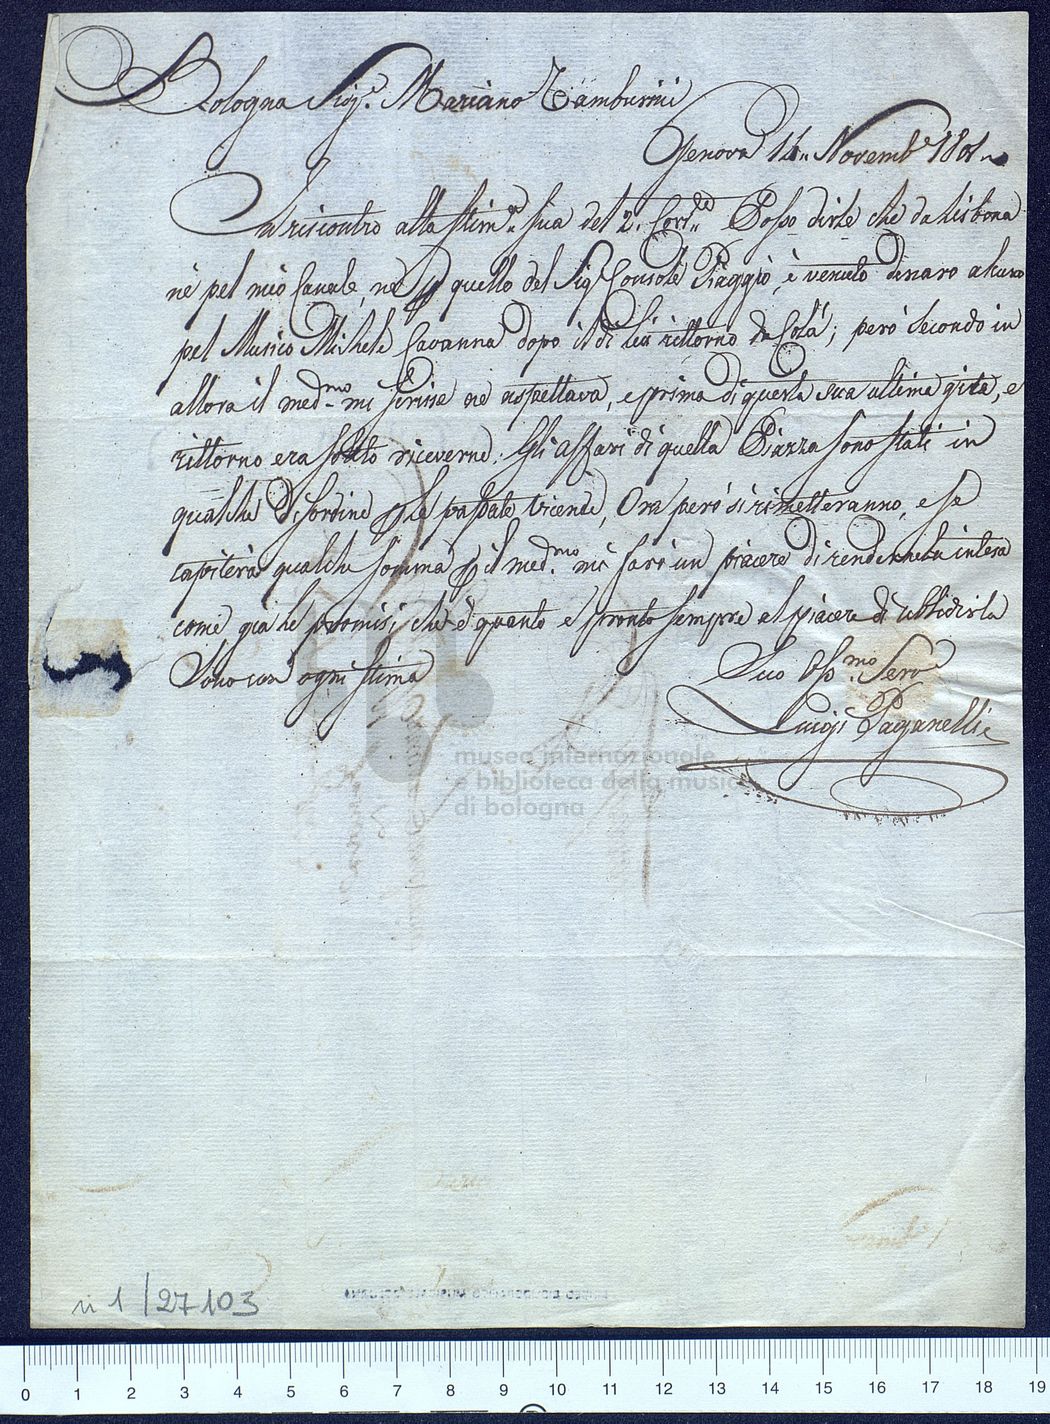 Bologna Sig.r Mariano Tamburini
Genova 14 Novemb.e 1801
In riscontro alla stim.ma sua del 2. Corr.te Posso dirle che da Lisbona
nè pel mio Canale, nè p quello del Sig.r Console Piaggio, è venuto denaro alcuno
pel Musico Michele Cavanna dopo il di lei rittorno da Colà; però secondo in
allora il med.mo mi scrisse ne aspettava, e prima di questa sua ultima gita, e
rittorno era solito riceverne. Gli affari di quella Piazza sono stati in
qualche disordine p le passate vicende, Ora però si rimetteranno, e se
capiterà qualche somma p il med.mo mi farò un piacere di rendernela intesa
come già le promisi; che è quanto e pronto sempre al piacere di ubbidirla
Sono con ogni stima
Suo Oss.mo Serv.e
Luigi Paganelli
museo internazionale
e biblioteca della musica
di bologna
n 1 / 27103
0 1 2 3 4 5 6 7 8 9 10 11 12 13 14 15 16 17 18 19